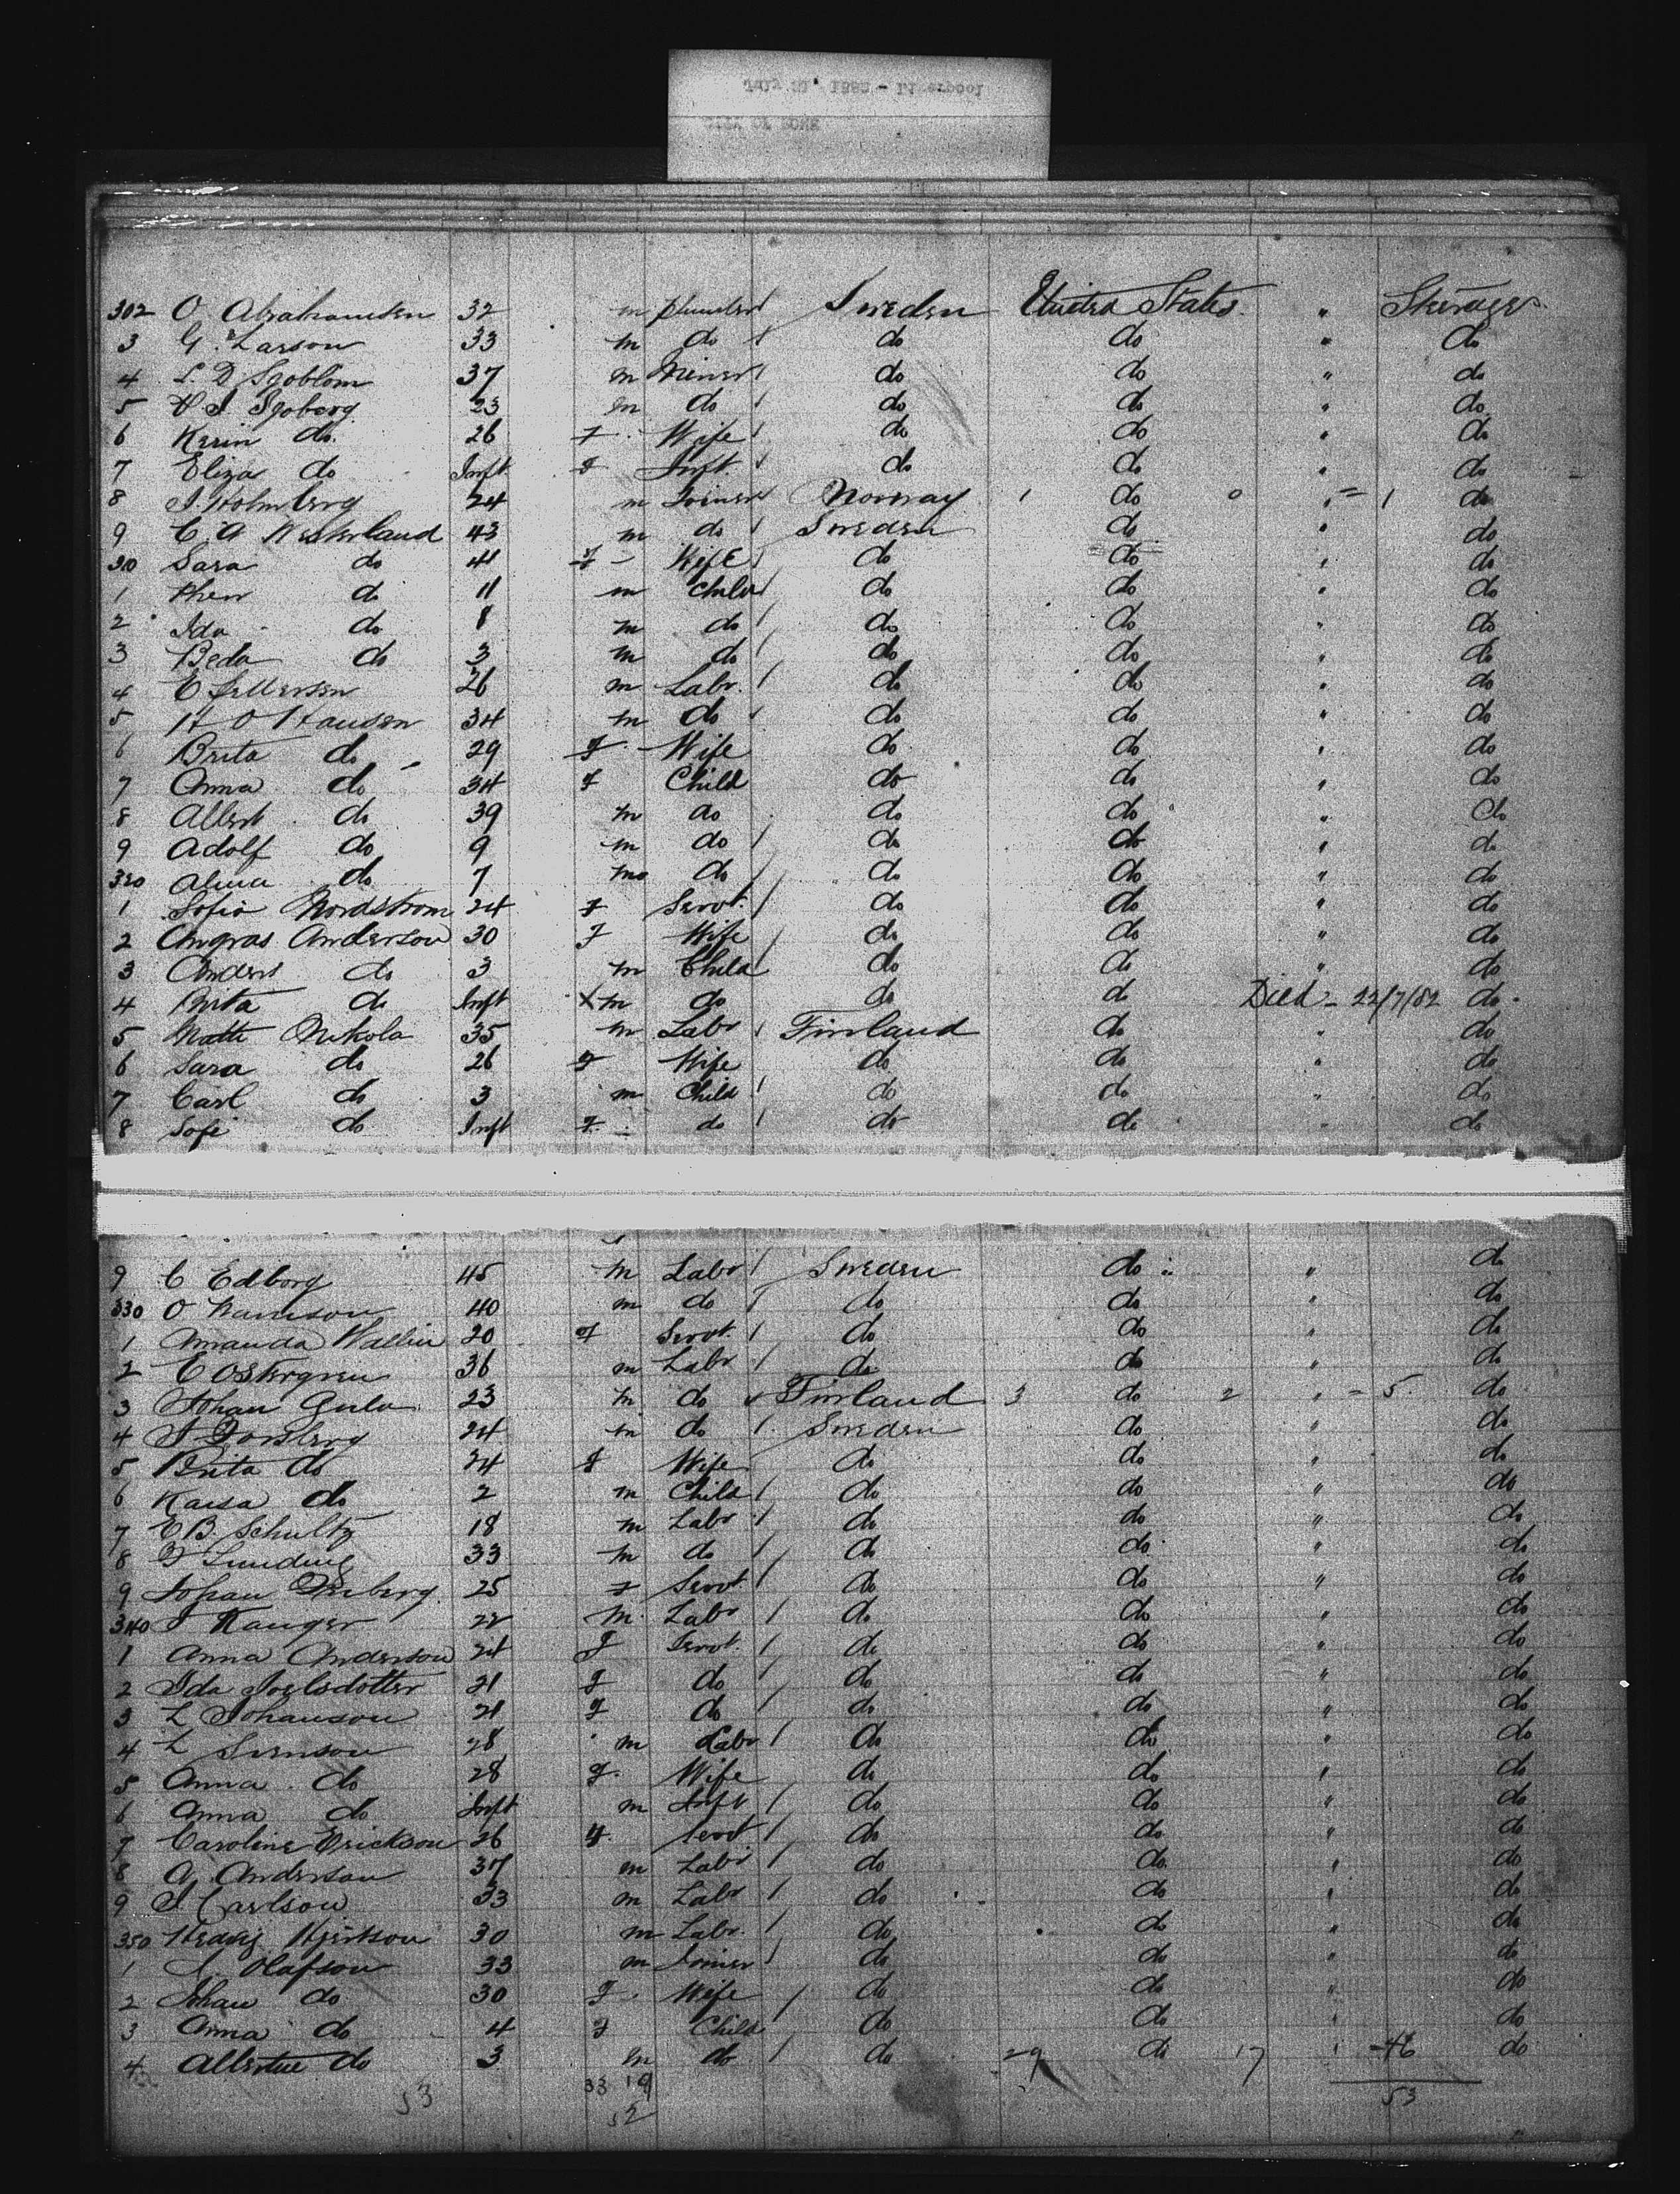 July 31 1882 - Liverpool
CITY OF ROME
302 O Abrahamsen 32 m plumber Sweden United States " Steerage
3 G. Larson 33 m do do do " do
4 L. D Sjoblom 37 m Miner do do " do
5 V I Sjoberg 23 m do do do " do
6 Kerin do 26 f Wife do do " do
7 Eliza do Inft f Inft do do " do
8 J. Holmberg 24 m Joiner Norway 1 do 0 " = 1 do
9 C. A Kesterland 43 m do Sweden do " do
310 Sara do 41 f Wife do do " do
1 do 11 m Child do do " do
2 Ida do 8 m do do do " do
3 Beda do 3 m do do do " do
4 E 26 m Labr. do do " do
5 H O Hansen 34 m do do do " do
6 Brita do 29 f Wife do do " do
7 Anna do 34 f Child do do " do
8 Albert do 39 m do do do " do
9 Adolf do 9 m do do do " do
320 Alma do 7 m do do do " do
1 Sofia Nordstrom 24 f Servt. do do " do
2 Anderson 30 f Wife do do " do
3 Anders do 3 m Child do do " do
4 Brita do Inft X m do do do Died - 22/7/82 do
5 Matti Nikola 35 m Labr Finland do " do
6 Sara do 26 f Wife do do " do
7 Carl do 3 m Child do do " do
8 Sofi do Inft f do do do " do
9 C Edborg 45 m Labr Sweden do " do
330 O 40 m do do do " do
1 Amanda Wallin 20 f Servt. do do " do
2 E Ostergren 36 m Labr do do " do
3 Johan Gula 23 m do Finland 3 do 2 " = 5 do
4 J Forsberg 24 m do Sweden do " do
5 Brita do 24 f Wife do do " do
6 Kaisa do 2 m Child do do " do
7 E B. Schultz 18 m Labr do do " do
8 F 33 m do do do " do
9 Johan 25 f Servt. do do " do
340 J Kanger 22 m Labr do do " do
1 Anna Anderson 24 f Servt. do do " do
2 Ida Joelsdotter 21 f do do do " do
3 L Johanson 21 f do do do " do
4 L Svenson 28 m Labr do do " do
5 Anna do 28 f Wife do do " do
6 Anna do Inft m Inft do do " do
7 Caroline Erickson 26 f Servt do do " do
8 A. Anderson 37 m Labr do do " do
9 J. Carlson 33 m Labr do do " do
350 Hedvig 30 m Labr. do do " do
1 Olafson 33 m Joiner do do " do
2 Johan do 30 f Wife do do " do
3 Anna do 4 f Child do do " do
4 do 3 m do do 29 do 17 " 46 do
53 33 19 53
52